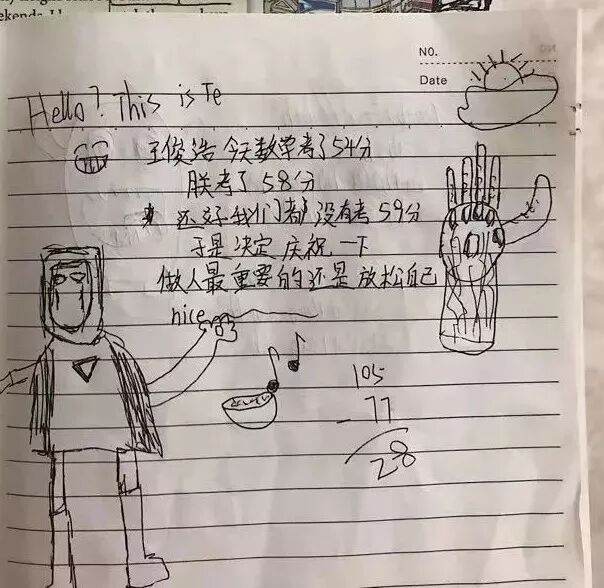 NO.
Date
Hello? This is Te
王俊浩今天数学考了54分
朕考了58分
还好我们都没有考59分
于是决定庆祝一下
做人最重要的还是放松自己
nice
105
- 77
28